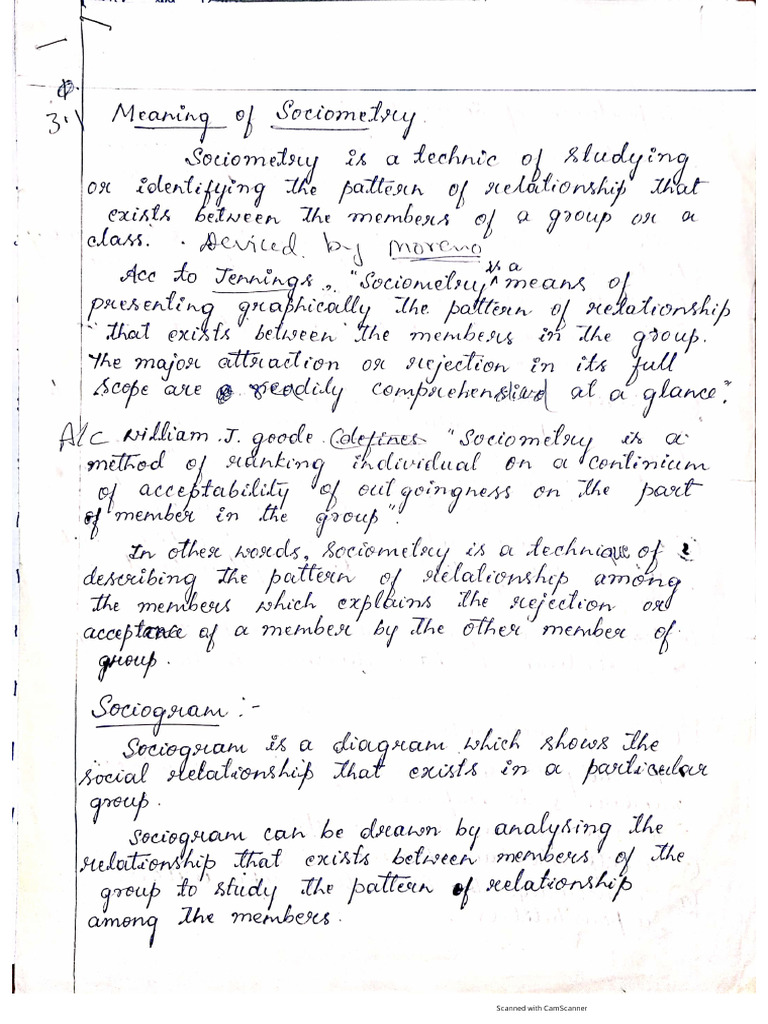 Q.
3.1
Meaning of Sociometry.
Sociometry is a technic of studying
or identifying the pattern of relationship that
exists between the members of a group or a
class. . Deviced by Moreno
Acc to Jennings, "Sociometry is a means of
presenting graphically the pattern of relationship
that exists between the members in the group.
The major attraction or rejection in its full
scope are readily at a glance".
A/C William .J. goode (defines "Sociometry is a
method of ranking individual on a continium
of acceptability of out goingness on the part
of member in the group".
In other words, Sociometry is a technique of
describing the pattern of relationship among
the members which explains the rejection or
acceptance of a member by the other member of
group.
Sociogram :-
Sociogram is a diagram which shows the
social relationship that exists in a particular
group.
Sociogram can be drawn by analysing the
relationship that exists between members of the
group to study the pattern of relationship
among the members.
Scanned with CamScanner